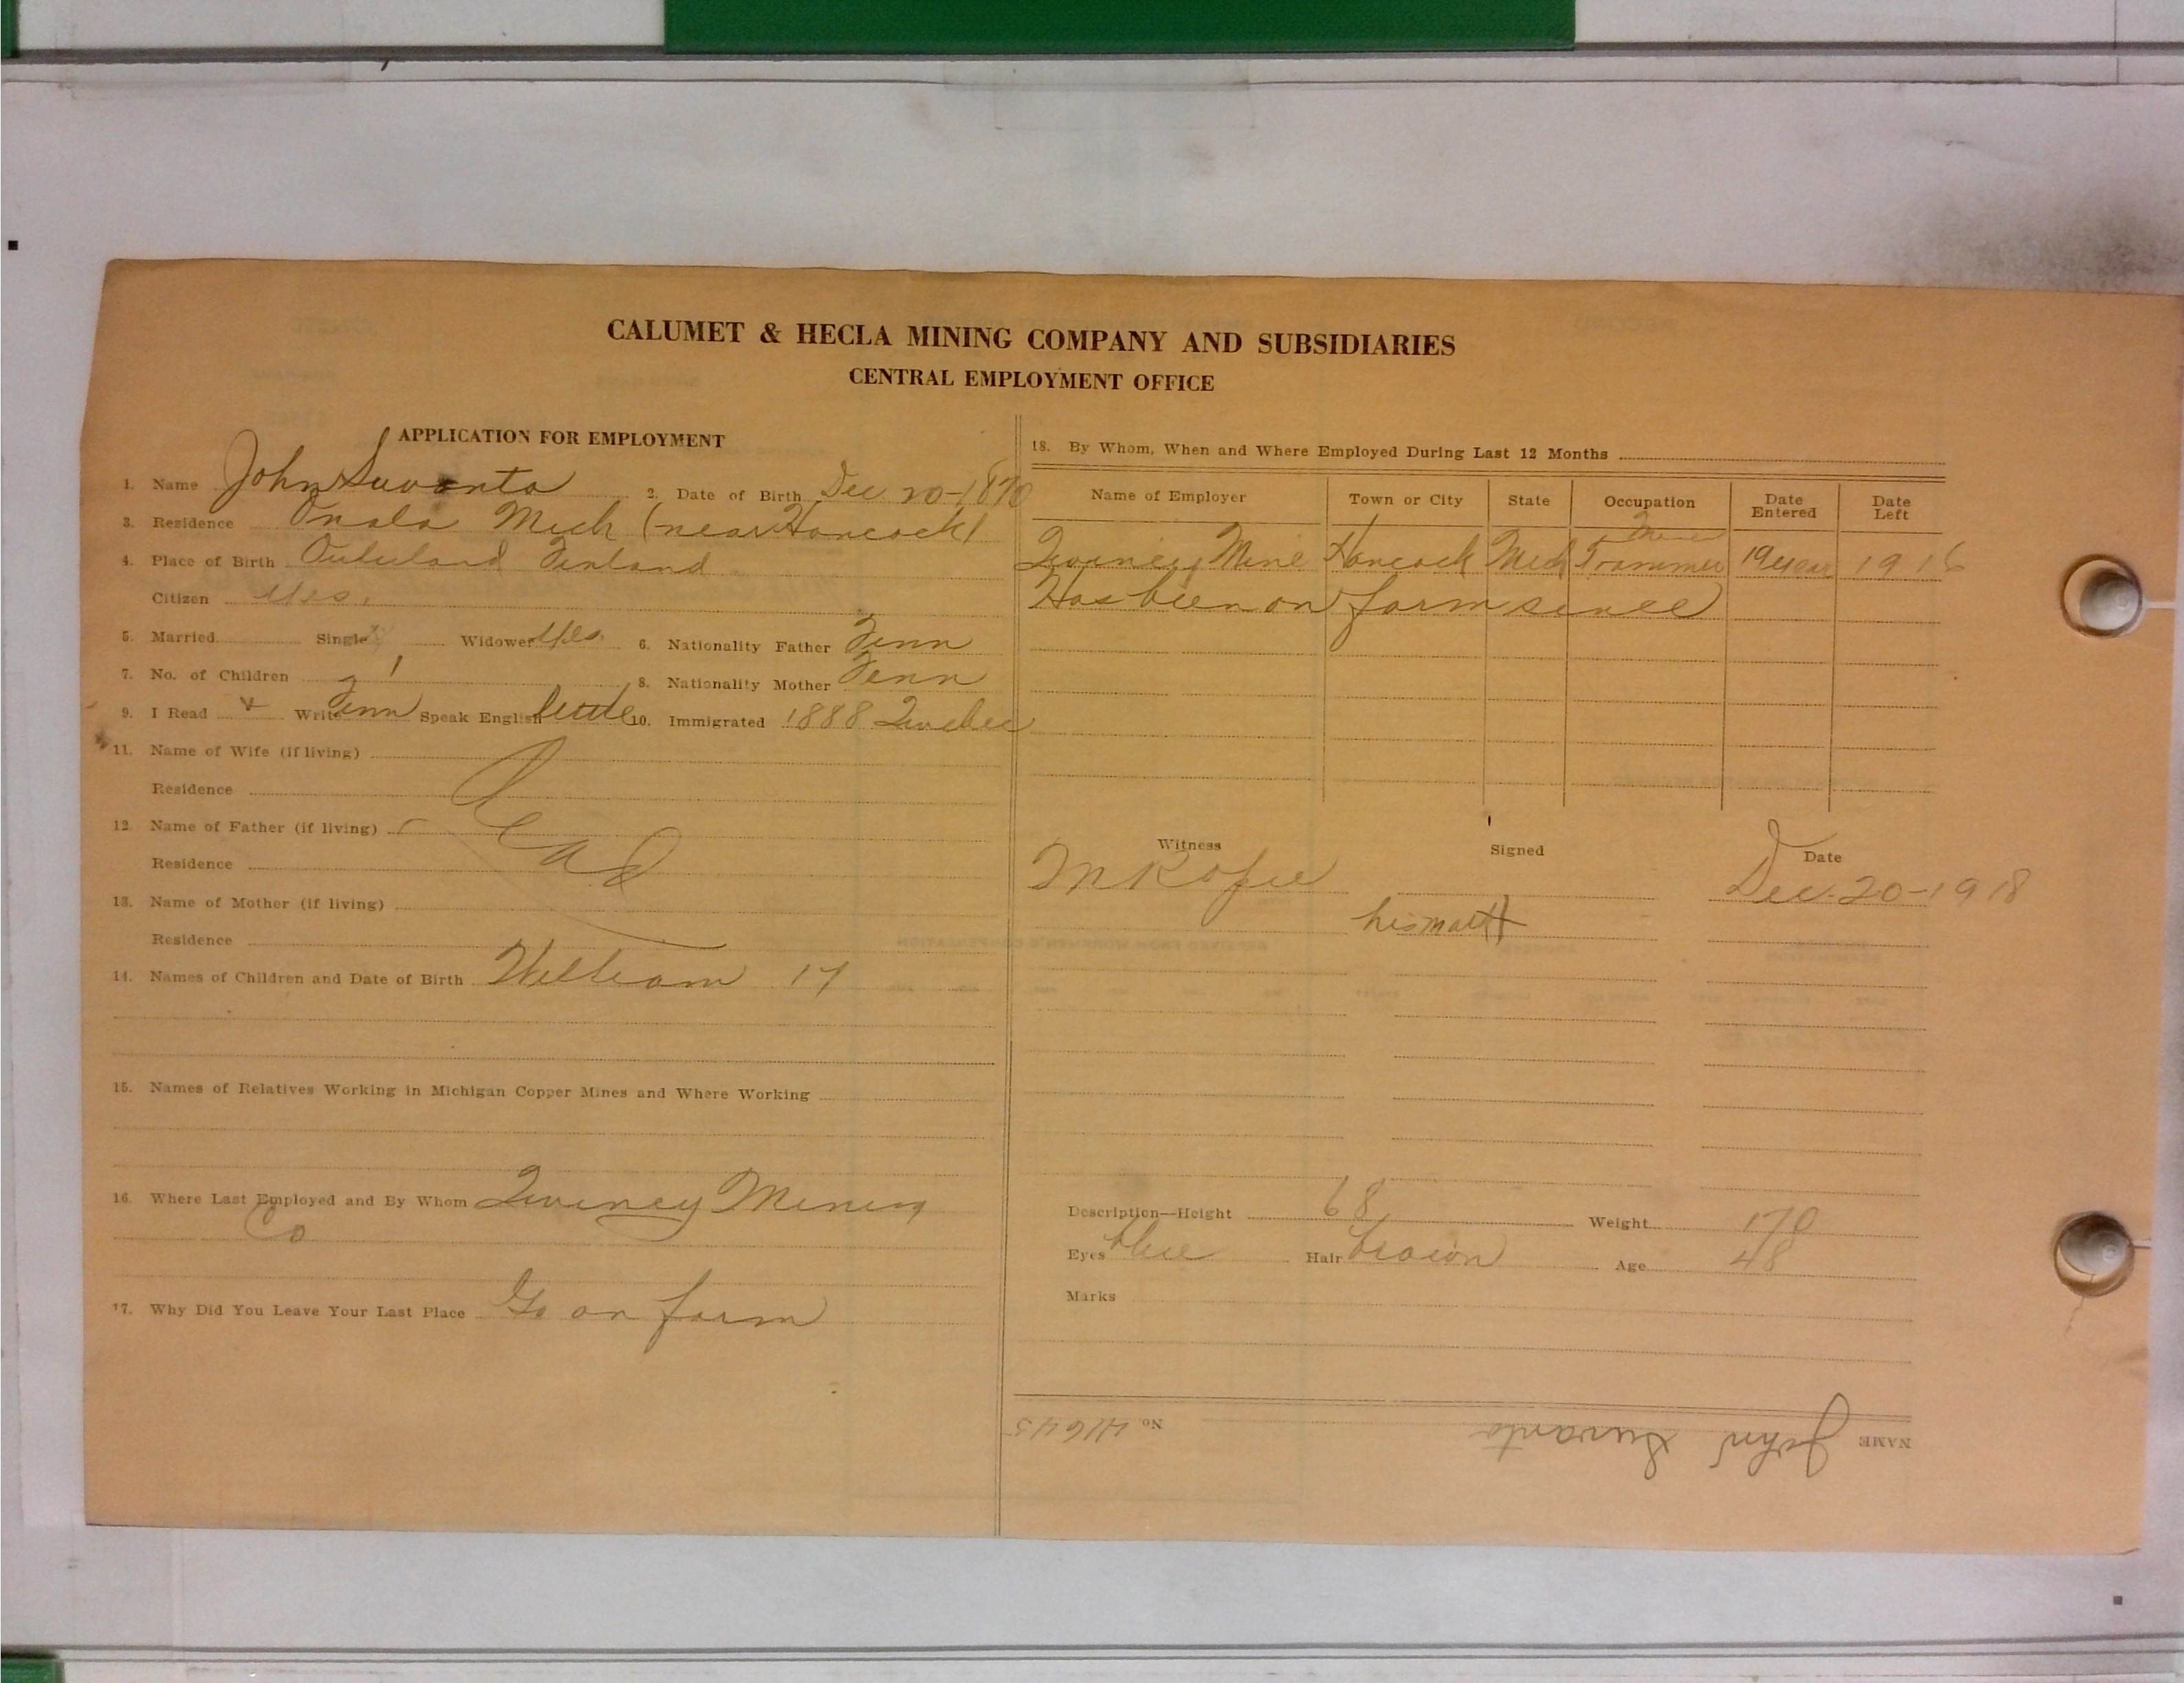 CALUMET & HECLA MINING COMPANY AND SUBSIDIARIES
CENTRAL EMPLOYMENT OFFICE
APPLICATION FOR EMPLOYMENT
1. Name John Suvanto 2. Date of Birth Dec 20-1870
3. Residence Mich (near Hancock)
4. Place of Birth Finland
Citizen Yes.
5. Married Single Widower Yes. 6. Nationality Father Finn
7. No. of Children 1 8. Nationality Mother Finn
9. I Read Write Finn Speak English little 10. Immigrated 1888 Quebec
11. Name of Wife (if living)
Residence
12. Name of Father (if living)
Dead
Residence
13. Name of Mother (if living)
Residence
14. Names of Children and Date of Birth William 17
15. Names of Relatives Working in Michigan Copper Mines and Where Working
16. Where Last Employed and By Whom Quincy Mining
Co
17. Why Did You Leave Your Last Place Go on farm
18. By Whom, When and Where Employed During Last 12 Months
Name of Employer Town or City State Occupation Date Entered Date Left
Miner
Quincy Mine Hancock Mich Trammer 19 year 1916
Has been on farm since
Witness Signed Date
Dec. 20-1918
his mark X
Description—Height 68 Weight 170
Eyes blue Hair brown Age 48
Marks
NAME John Suvanto No. 41643